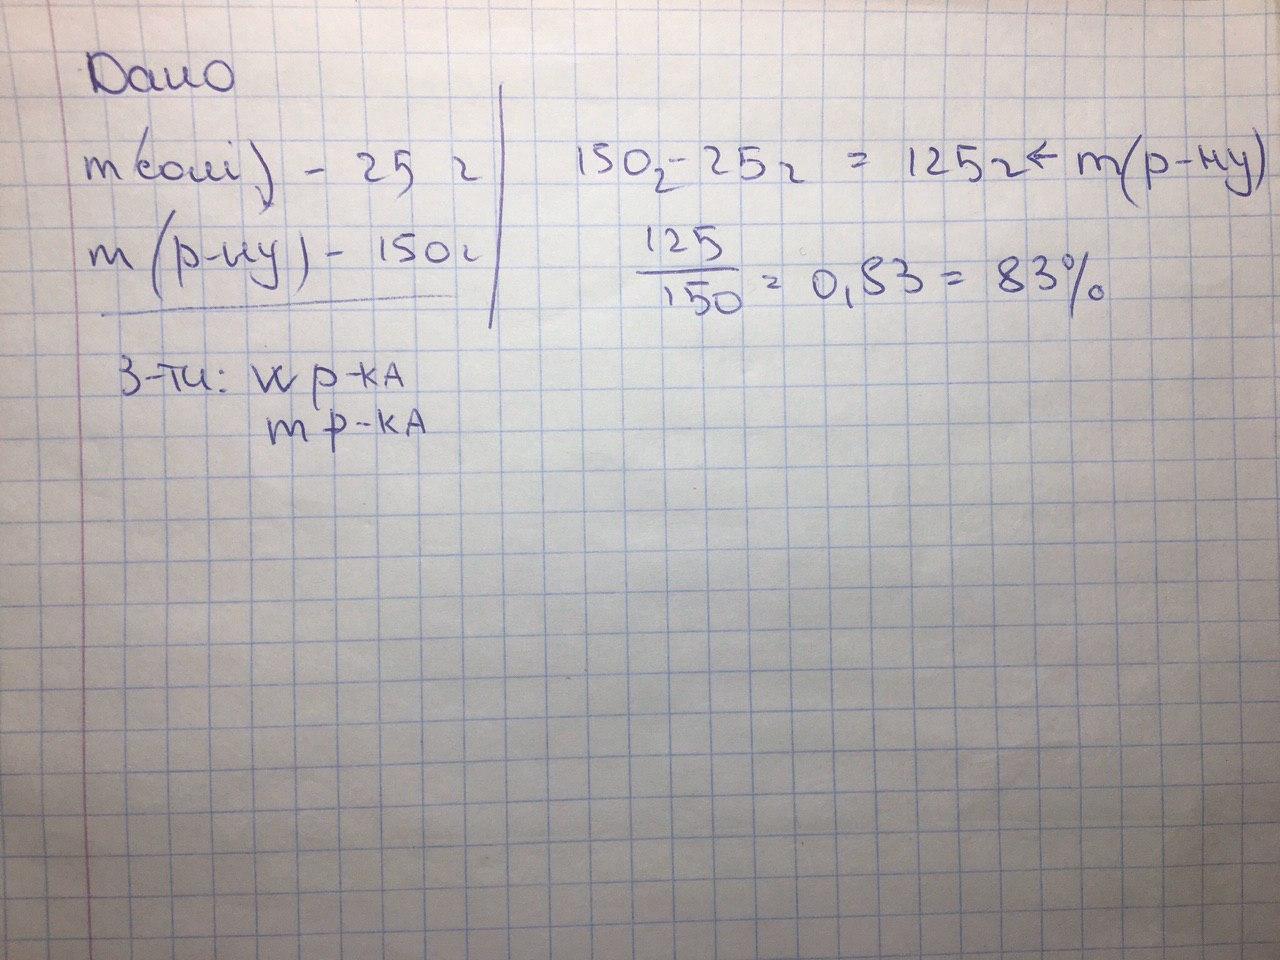 Дано
m(солі) - 25 г
m(р-ну) - 150г
З-ти: w р-кА
m р-кА
150г - 25г = 125г ← m(р-ну)
125
150 = 0,83 = 83%